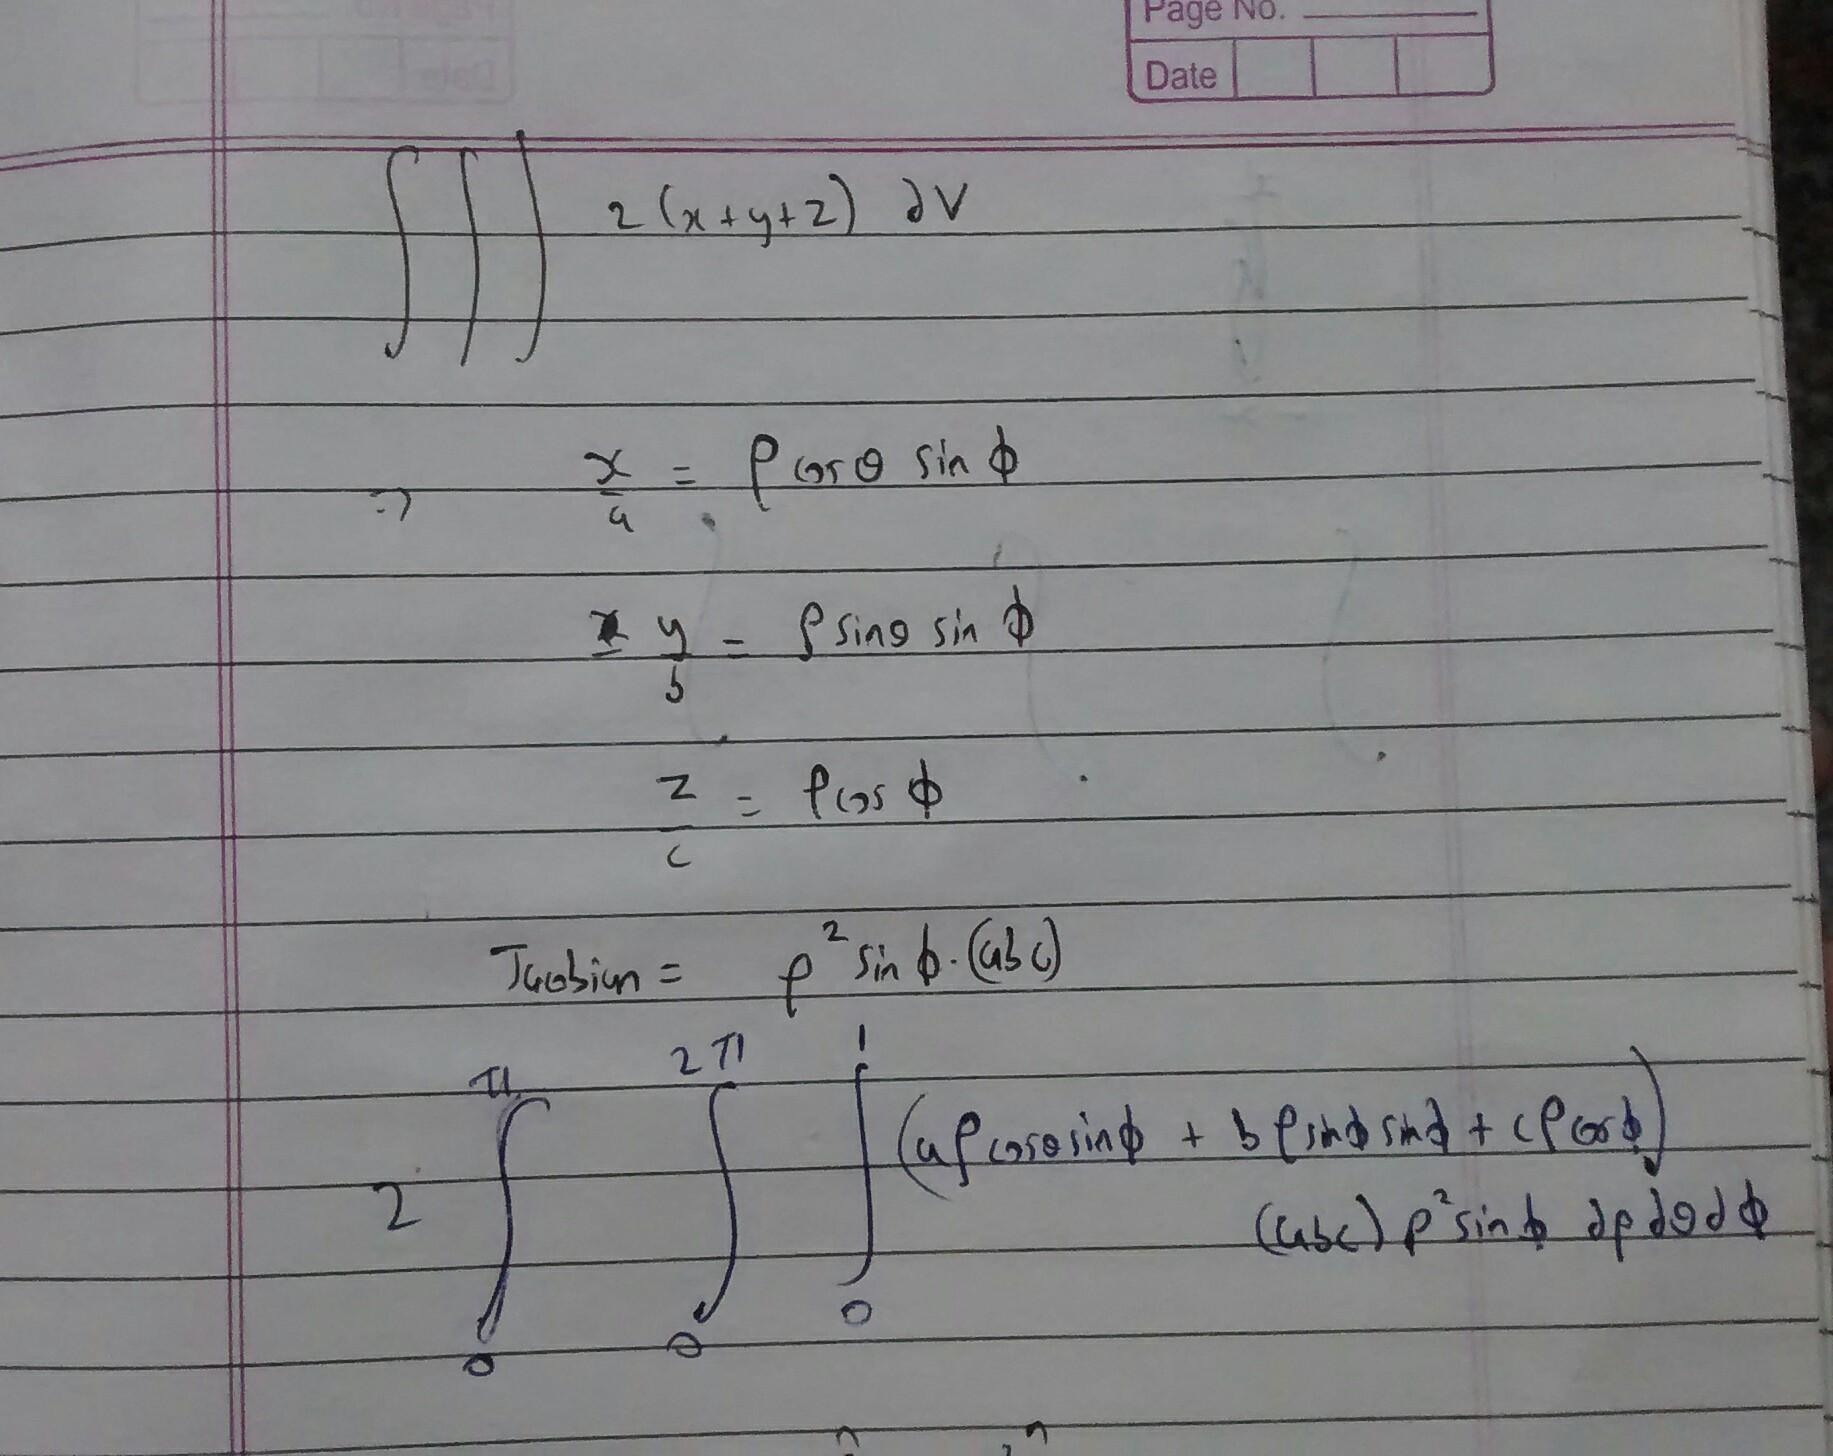 Page No.
Date
∫∫∫ 2(x+y+z) ∂V
⇒ x/a = ρ cosθ sin ϕ
y/b = ρ sinθ sin ϕ
z/c = ρ cos ϕ
Jacobian = ρ² sin ϕ · (abc)
2 ∫₀^π ∫₀^2π ∫₀^1 (aρ cosθ sinϕ + bρ sinϕ sinϕ + cρ cosϕ)
(abc) ρ² sin ϕ ∂ρ ∂θ dϕ